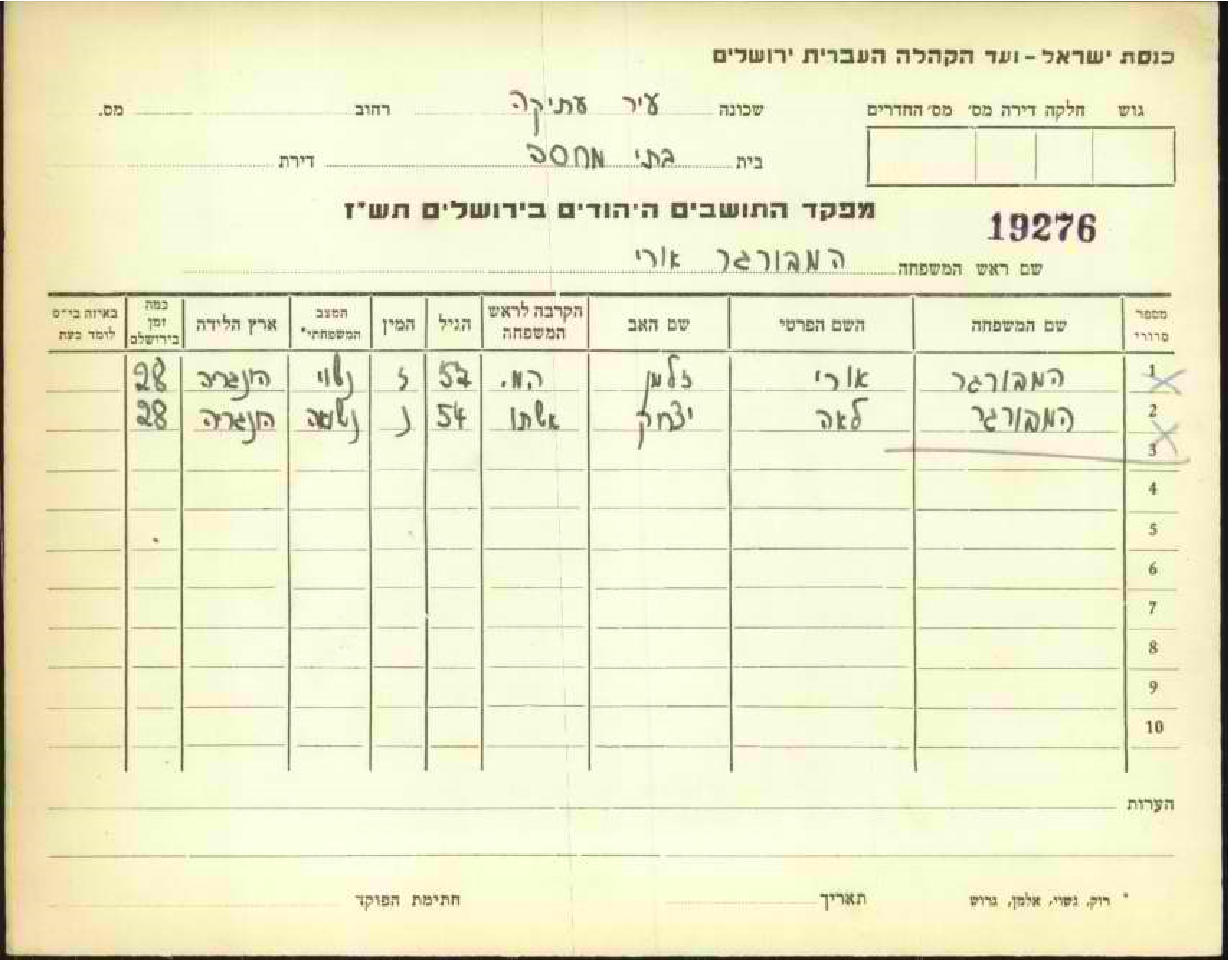 כנסת ישראל - ועד הקהלה העברית ירושלים
גוש חלקה דירה מס' מס' החדרים
שכונה עיר עתיקה רחוב מס.
בית בתי מחסה דירת
מפקד התושבים היהודים בירושלים תש"ז
19276
שם ראש המשפחה המבורגר אורי
מספר סדורי שם המשפחה השם הפרטי שם האב הקרבה לראש המשפחה הגיל המין המצב המשפחתי* ארץ הלידה כמה זמן בירושלם באיזה בי"ס לומד כעת
1 המבורגר אורי זלמן המ. 52 ז נשוי הונגריה 28
2 המבורגר לאה יצחק אשתו 54 נ נשואה הונגריה 28
3
4
5
6
7
8
9
10
הערות
* רוק, נשוי, אלמן, גרוש תאריך חתימת הפוקד